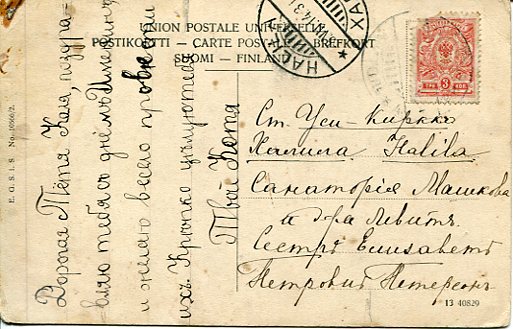 UNION POSTALE UNIVERSELLE
POSTIKORTTI — CARTE POSTALE — BREFKORT
SUOMI — FINLAND
3
Дорогая Тётя Катя, поздра-
вляю тебя съ днёмъ Имѧнинъ
и желаю весело провести
ихъ. Крѣпко цѣлую тебя
Твой Котя
Ст. Уси-Кирко
Халила Halila
Санаторія Машкова
и д-ра Левитъ.
Сестрѣ Елисаветѣ
Петровнѣ Петерсонъ
E. G. S. i. S. No. 10666/2.
13 40829